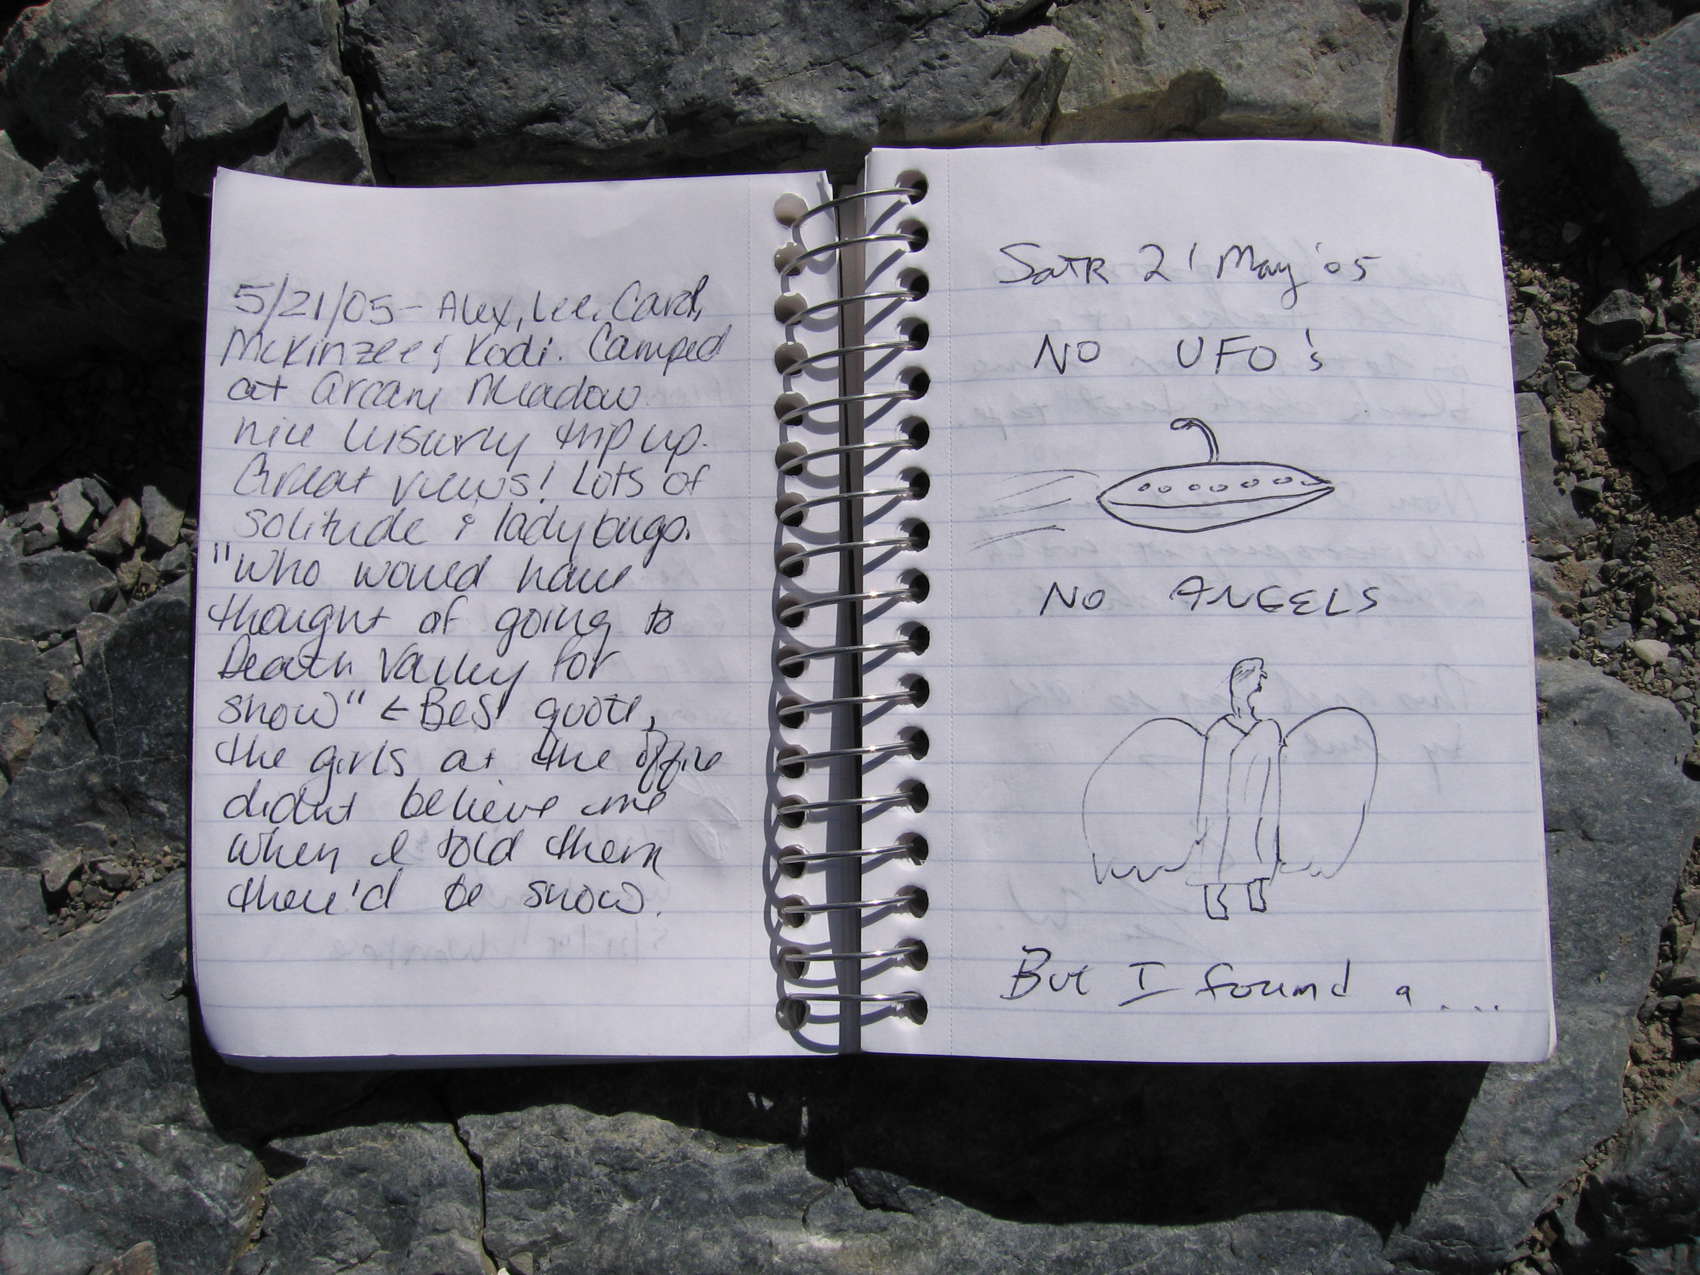 5/21/05 - Alex, Lee, Carol,
McKinzee & Kodi. Camped
at Arcane Meadow.
nice lisurely trip up.
Great views! Lots of
solitude & lady bugs.
"Who would have
thought of going to
Death Valley for
snow" ← Best quote,
the girls at the office
didnt believe me
when I told them
there'd be snow.
SatR 21 May '05
NO UFO's
NO ANGELS
But I found a ....